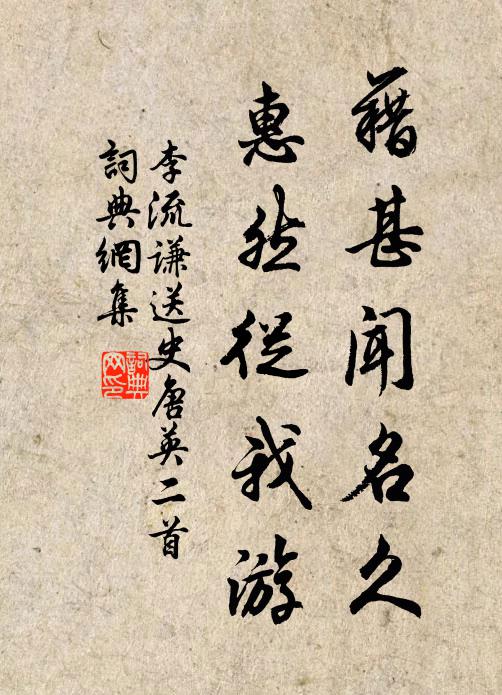 藉甚聞名久
惠然從我游
李流謙送史唐英二首
詞典網集
詞典網印